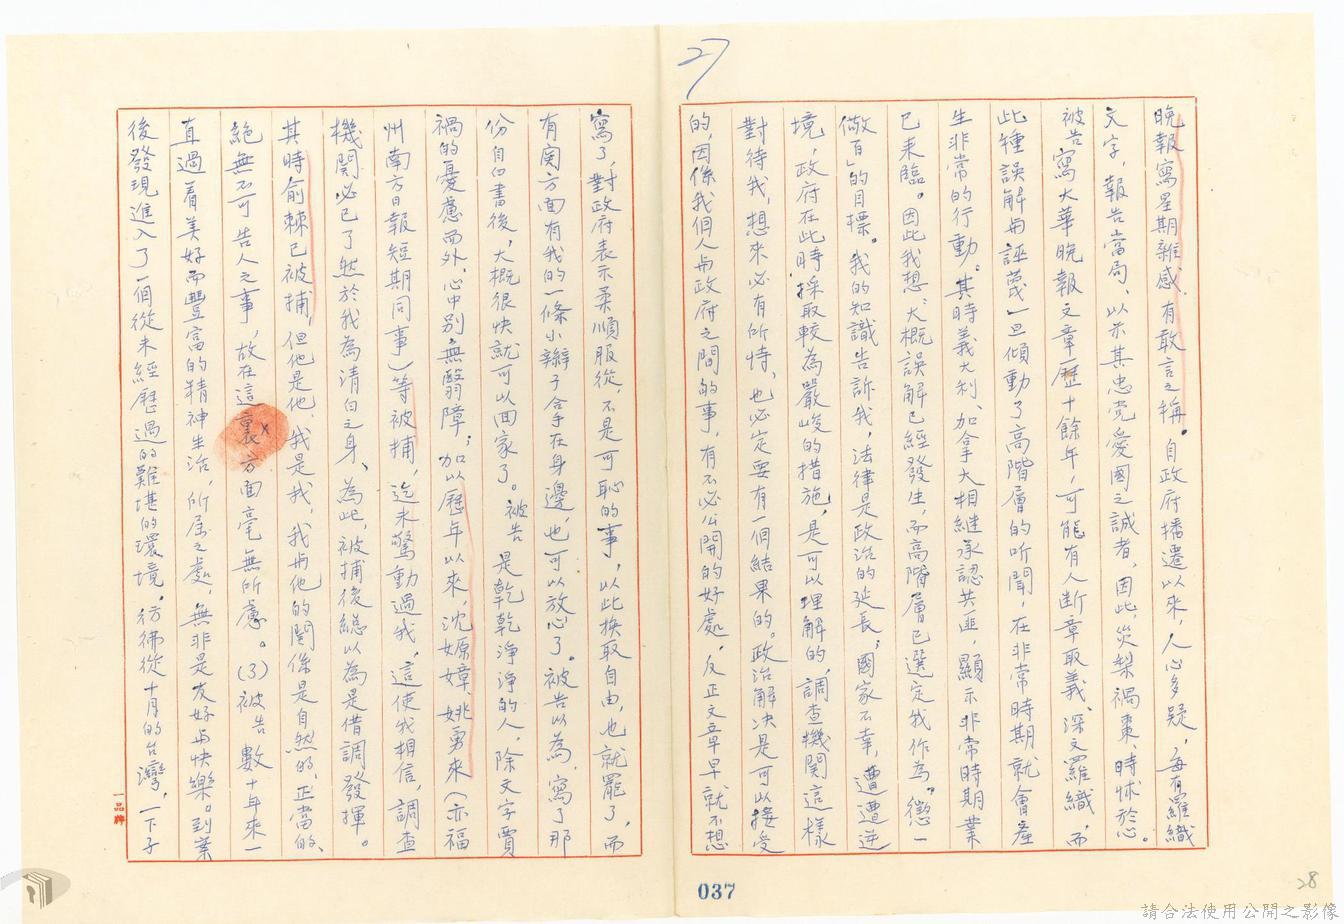 27
晚報寫星期雜感，有敢言之稱。自政府播遷以來，人心多疑，每有羅織
文字，報告當局、以示其忠党愛國之誠者，因此災梨禍棗、時怵於心。
被告寫大華晚報文章歷十餘年，可能有人断章取義、深文羅織，而
此種誤解與誣蔑，一旦傾動了高階層的听聞，在非常時期就會產
生非常的行動。其時義大利、加拿大相継承認共匪，顯示非常時期業
已来臨。因此我想：大概誤解已經發生，而高階層已選定我作為「懲一
儆百」的目標。我的知識告訴我，法律是政治的延長；國家不幸，遭遭逆
境，政府在此時採取較為嚴峻的措施，是可以理解的，調查機関這樣
對待我，想來必有所恃、也必定要有一個結果的。政治解決是可以接受
的，因係我個人與政府之間的事，有不必公開的好處，反正文章早就不想
寫了，對政府表示柔順服從，不是可恥的事，以此換取自由，也就罷了，而
有関方面有我的一條小辮子拿在身邊，也可以放心了。被告以為，寫了那
份自白書後，大概很快就可以回家了。被告是乾乾淨淨的人，除文字賈
禍的憂慮而外，心中別無翳障；加以歷年以來，沈嫄嫜、姚勇來（亦福
州南方日報短期同事）等被捕，迄未驚動過我，這使我相信，調查
機関必已了然於我為清白之身、為此，被捕後總以為是借調發揮。
其時俞棘已被捕，但他是他，我是我，我與他的関係是自然的、正當的、
絕無不可告人之事，故在這裏方面毫無所慮。(3)被告數十年來一
直過着美好而豐富的精神生活，所居之處，無非是友好與快樂。到案
後發現進入了一個從未經歷過的難堪的環境。彷彿從十月的台灣，一下子
一品牌
037
28
請合法使用公開之影像